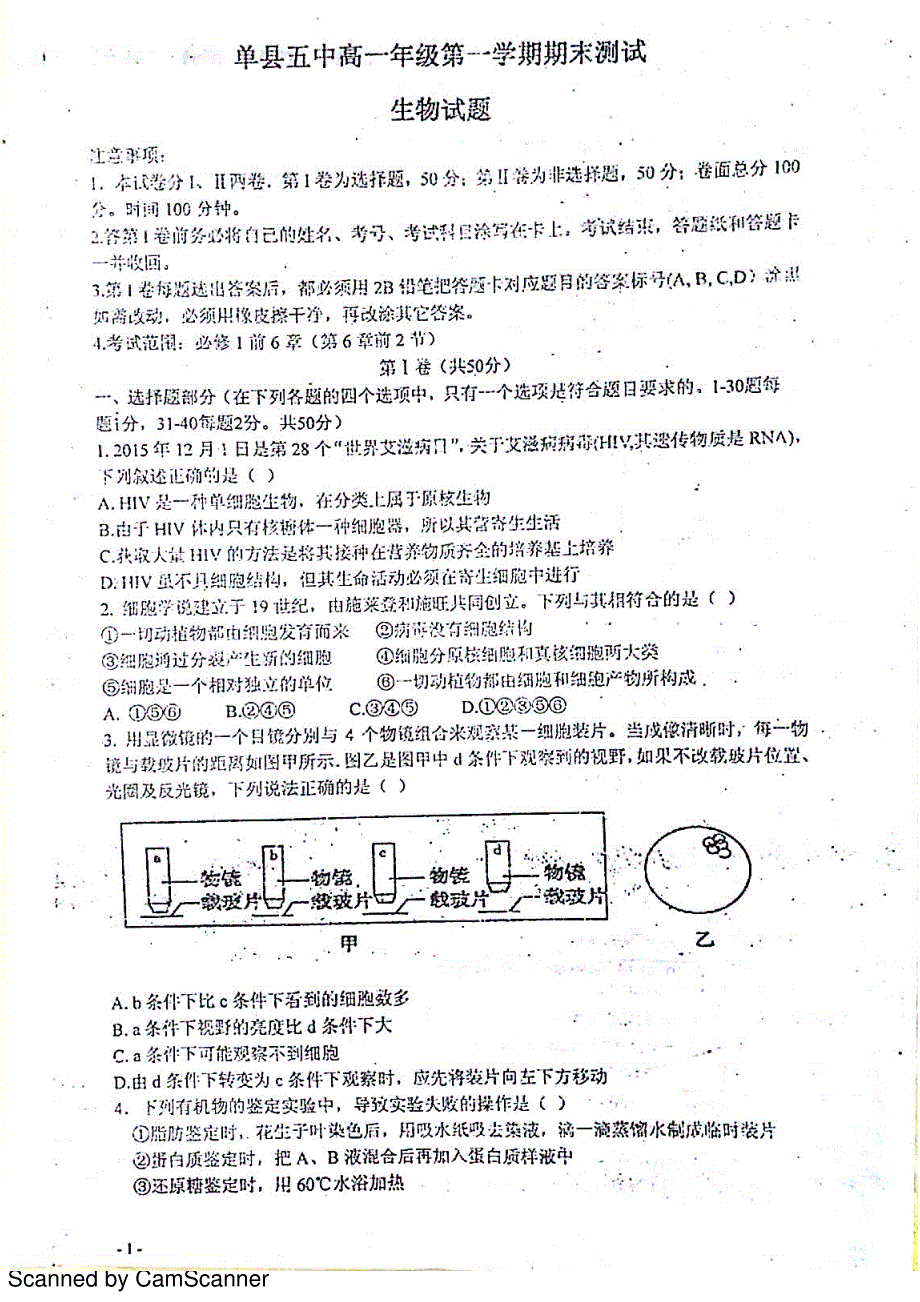 单县五中高一年级第一学期期末测试
生物试题
注意事项：
1. 本试卷分 I、II 两卷．第 I 卷为选择题，50 分；第 II 卷为非选择题，50 分；卷面总分 100
分。时间 100 分钟。
2.答第 I 卷前务必将自己的姓名、考号、考试科目涂写在卡上。考试结束，答题纸和答题卡
一并收回。
3.第 I 卷每题选出答案后，都必须用 2B 铅笔把答题卡对应题目的答案标号(A, B, C,D）涂黑
如需改动，必须用橡皮擦干净，再改涂其它答案。
4.考试范围：必修 1 前 6 章（第 6 章前 2 节）
第 I 卷（共50分）
一、选择题部分（在下列各题的四个选项中，只有一个选项是符合题目要求的。1-30题每
题1分，31-40每题2分。共50分）
1. 2015 年 12 月 1 日是第 28 个“世界艾滋病日”，关于艾滋病病毒(HIV,其遗传物质是 RNA)，
下列叙述正确的是（ ）
A. HIV 是一种单细胞生物，在分类上属于原核生物
B.由于 HIV 体内只有核糖体一种细胞器，所以其营寄生生活
C.获取大量 HIV 的方法是将其接种在营养物质齐全的培养基上培养
D. HIV 虽不具细胞结构，但其生命活动必须在寄生细胞中进行
2. 细胞学说建立于 19 世纪，由施莱登和施旺共同创立。下列与其相符合的是（ ）
①一切动植物都由细胞发育而来 ②病毒没有细胞结构
③细胞通过分裂产生新的细胞 ④细胞分原核细胞和真核细胞两大类
⑤细胞是一个相对独立的单位 ⑥一切动植物都由细胞和细胞产物所构成．
A. ①⑤⑥ B.②④⑤ C.③④⑤ D.①③⑤⑥
3. 用显微镜的一个目镜分别与 4 个物镜组合来观察某一细胞装片。当成像清晰时，每一物
镜与载玻片的距离如图甲所示．图乙是图甲中 d 条件下观察到的视野，如果不改载玻片位置、
光圈及反光镜，下列说法正确的是（ ）
a b c d
物镜 物镜 物镜 物镜
载玻片 载玻片 载玻片 载玻片
甲 乙
A. b 条件下比 c 条件下看到的细胞数多
B. a 条件下视野的亮度比 d 条件下大
C. a 条件下可能观察不到细胞
D.由 d 条件下转变为 c 条件下观察时，应先将装片向左下方移动
4． 下列有机物的鉴定实验中，导致实验失败的操作是（ ）
①脂肪鉴定时，花生子叶染色后，用吸水纸吸去染液，滴一滴蒸馏水制成临时装片
②蛋白质鉴定时，把 A、B 液混合后再加入蛋白质样液中
③还原糖鉴定时，用 60℃水浴加热
- 1 -
Scanned by CamScanner